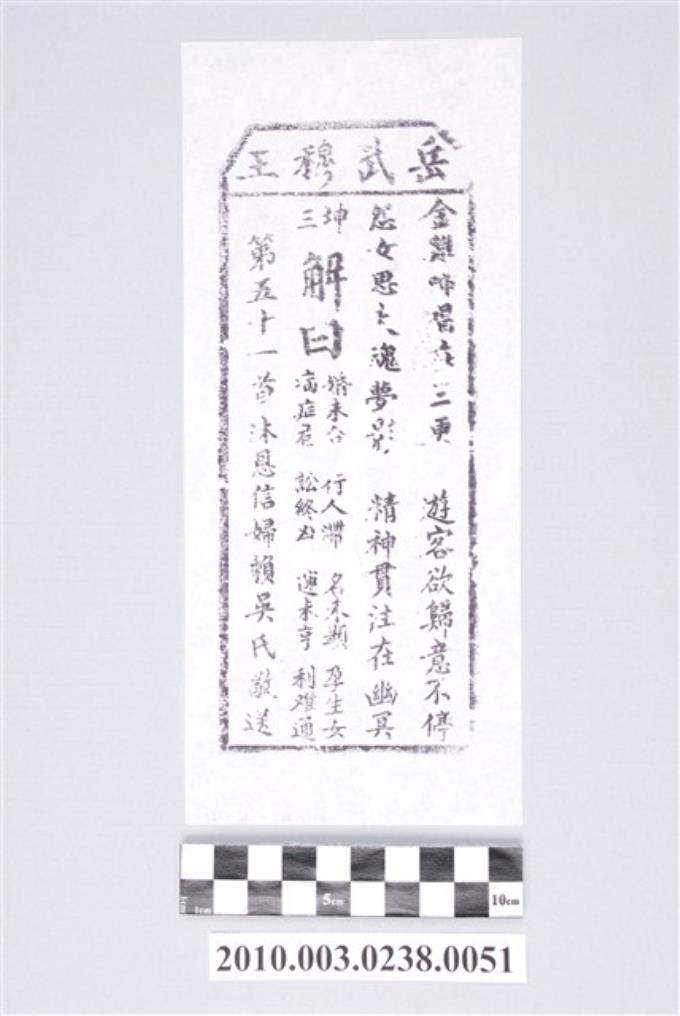 岳武穆王
金雞啼唱在三更 遊客欲歸意不停
怨女思夫魂夢影 精神貫注在幽冥
坤三
解曰
婚未合 行人滯 名未顯 孕生女
病症危 訟終凶 運未亨 利难通
第五十一首沐恩信婦賴吳氏敬送
1cm
1cm
5cm
10cm
2010.003.0238.0051